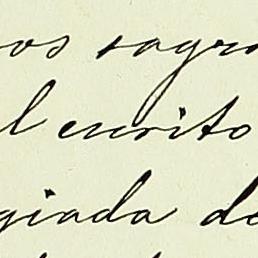 os sagra
l escrito
giada de